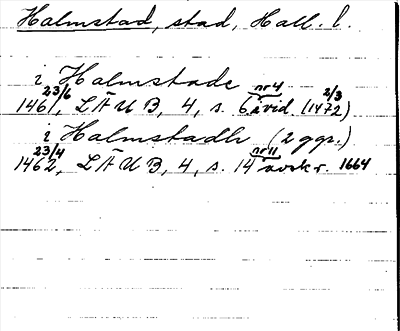 Halmstad, stad, Hall. l.
i Halmstade
1461 23/6, LÄUB, 4, s. 6 nr 4 avid. (1472 2/3)
i Halmstadh (2 ggr.)
1462 23/4, LÄUB, 4, s. 14 nr 11 avskr. 1664